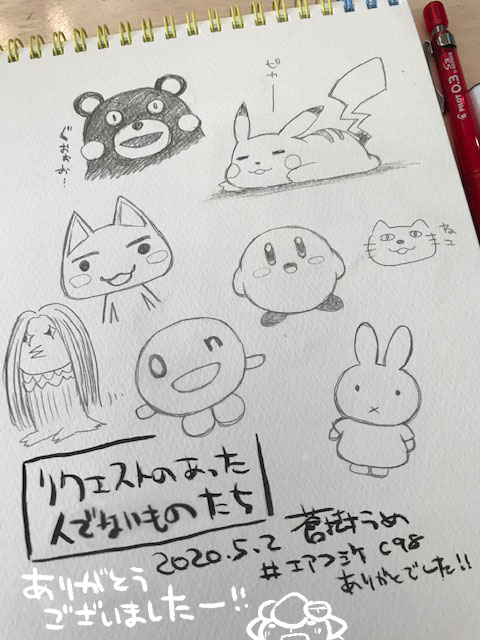 ピカー
ぐおぉぉ…
ねこ
on
リクエストのあった
人でないものたち
2020.5.2 蒼樹うめ
#エアコミケ C98
ありがとでした!!
ありがとう
ございましたー!!
PILOT 0.3